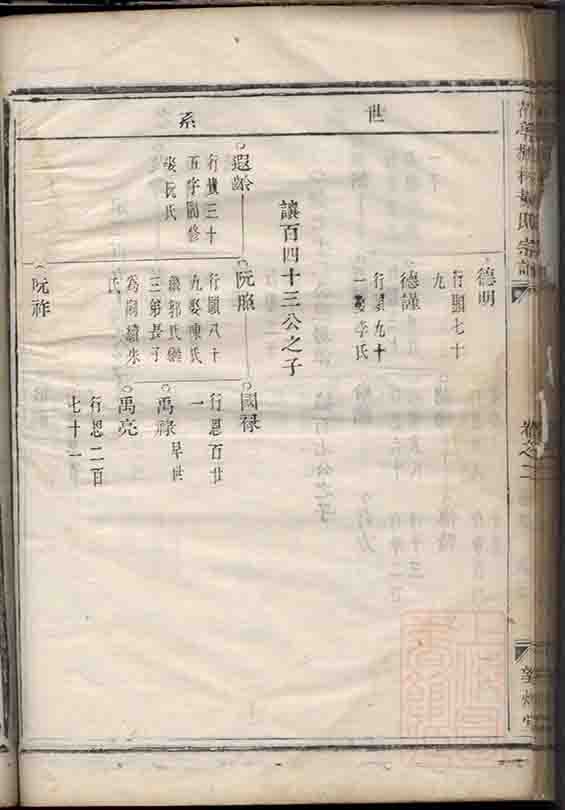 世系
德明
行顯七十
九
德謹
行顯九十
一娶李氏
讓百四十三公之子
遐齡
行讓三十
五字聞修
娶阮氏
阮照
行顯八十
九娶陳氏
繼郭氏繼
三弟長子
為嗣續朱
氏
國祿
行恩百廿
一
禹祿
早世
禹亮
行恩二百
七十一
阮祚
卷之二